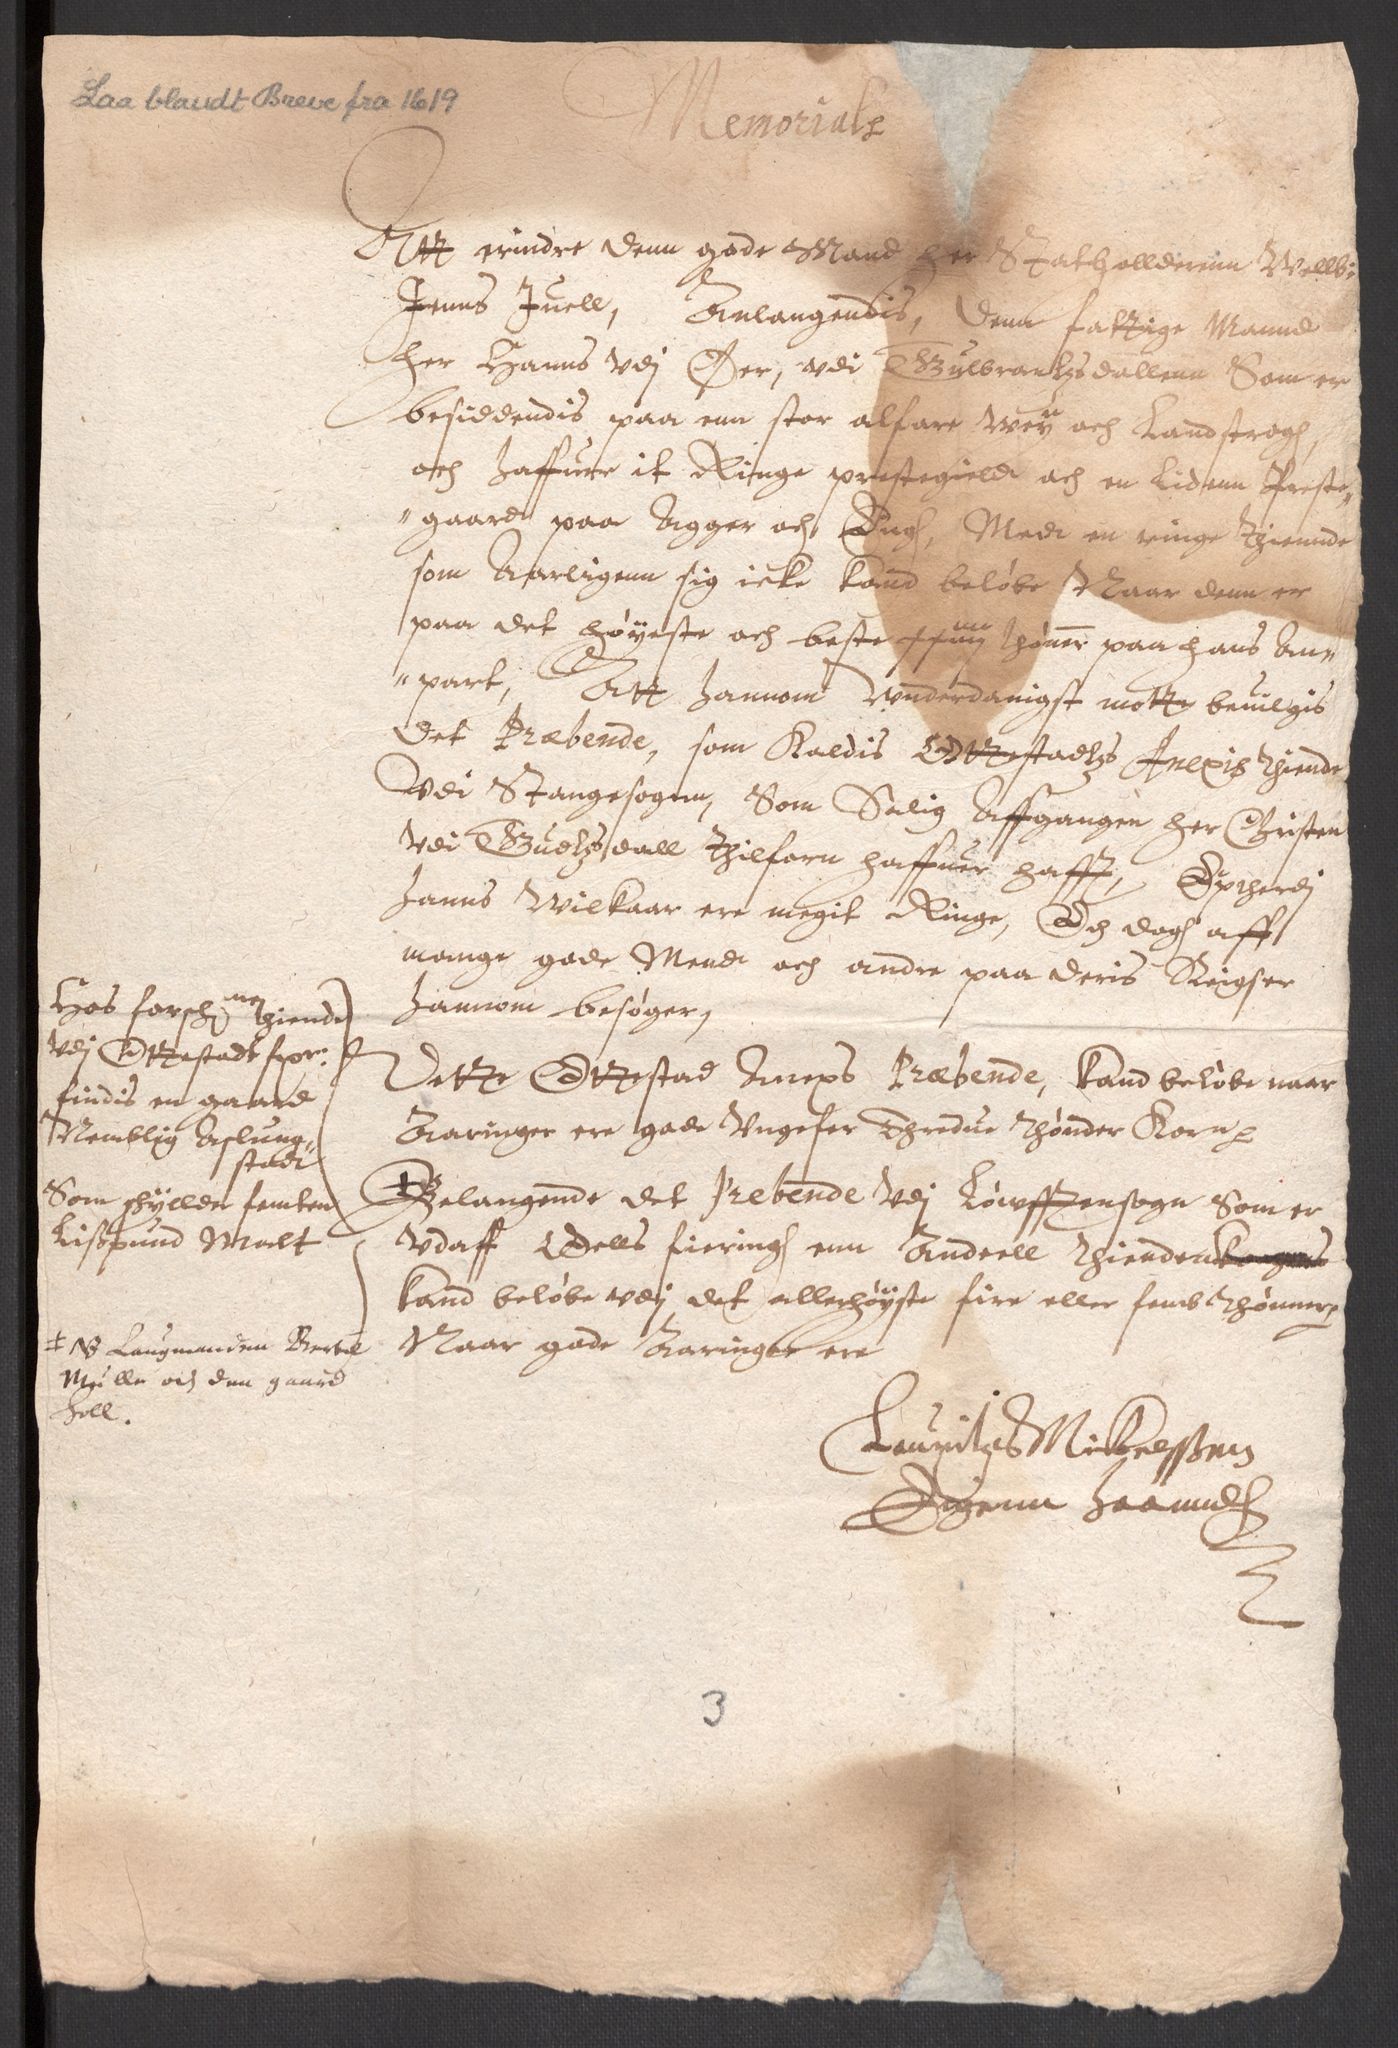 Laa blandt Breve fra 1619
Memorial
Att erindre denn gode Mand her Statholderenn Wellb:
Jenns Juell, Anlangendis, denn fattige Mannd
her Hanns vdj Øer, vdi Gulbrantzdallenn Som er
besiddendis paa enn stor alfare wey och Landstrogh,
och haffuer it Ringe prestegield och en Lidenn Preste-
"gaard paa Agger och Engh, Med en ringe thiennde
som Aarligenn sig icke kand beløbe Naar denn er
paa det høyeste och beste thøner paa hans An-
"part, Att hannom vnderdanigst motte beuilgis
Det Præbende, som Kaldis Ottestadtz Anexis thiende
vdi Stangesogenn, Som Salig Affgangen her Christen
vdi Gudtzdall thilforn haffuer hafft, Eptherdj
hanns Wilkaar ere megit Ringe, Och dogh aff
mange gode Mend och andre paa deris Reigser
hannom besøger,
Dette Ottestad Anexs Præbende, kand beløbe naar
Aaringer ere gode Vngefer Thredue thønder Korn
Belangende det Prebende vdj Løwfftensogn Som er
vdaff Odells fieringh enn Andeell thienden
kand beløbe vdj det allerhøyste fire eller femb thønner
Naar gode Aaringer ere
Lauritzs Mickelssen
Egenn haanndh
Hos forschne thiende
vdj Ottestadt
findis en gaard
Nemblig Aslung-
stad
Som schyller femten
Lispund Malt
‡ NB Laugmanden
Mølle och den gaard
holl.
3